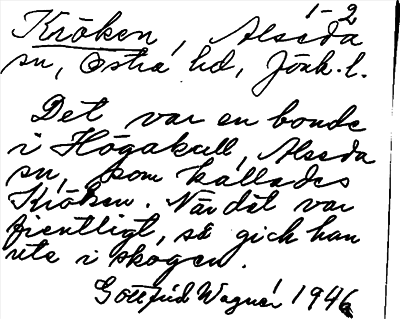 1-2
Kröken, Alseda
sn, Östra hd, Jönk. l.
Det var en bonde
i Högakull, Alseda
sn, som kallades
Kröken. När det var
fientligt, så gick han
ute i skogen.
Gottfrid Wagnér 1946